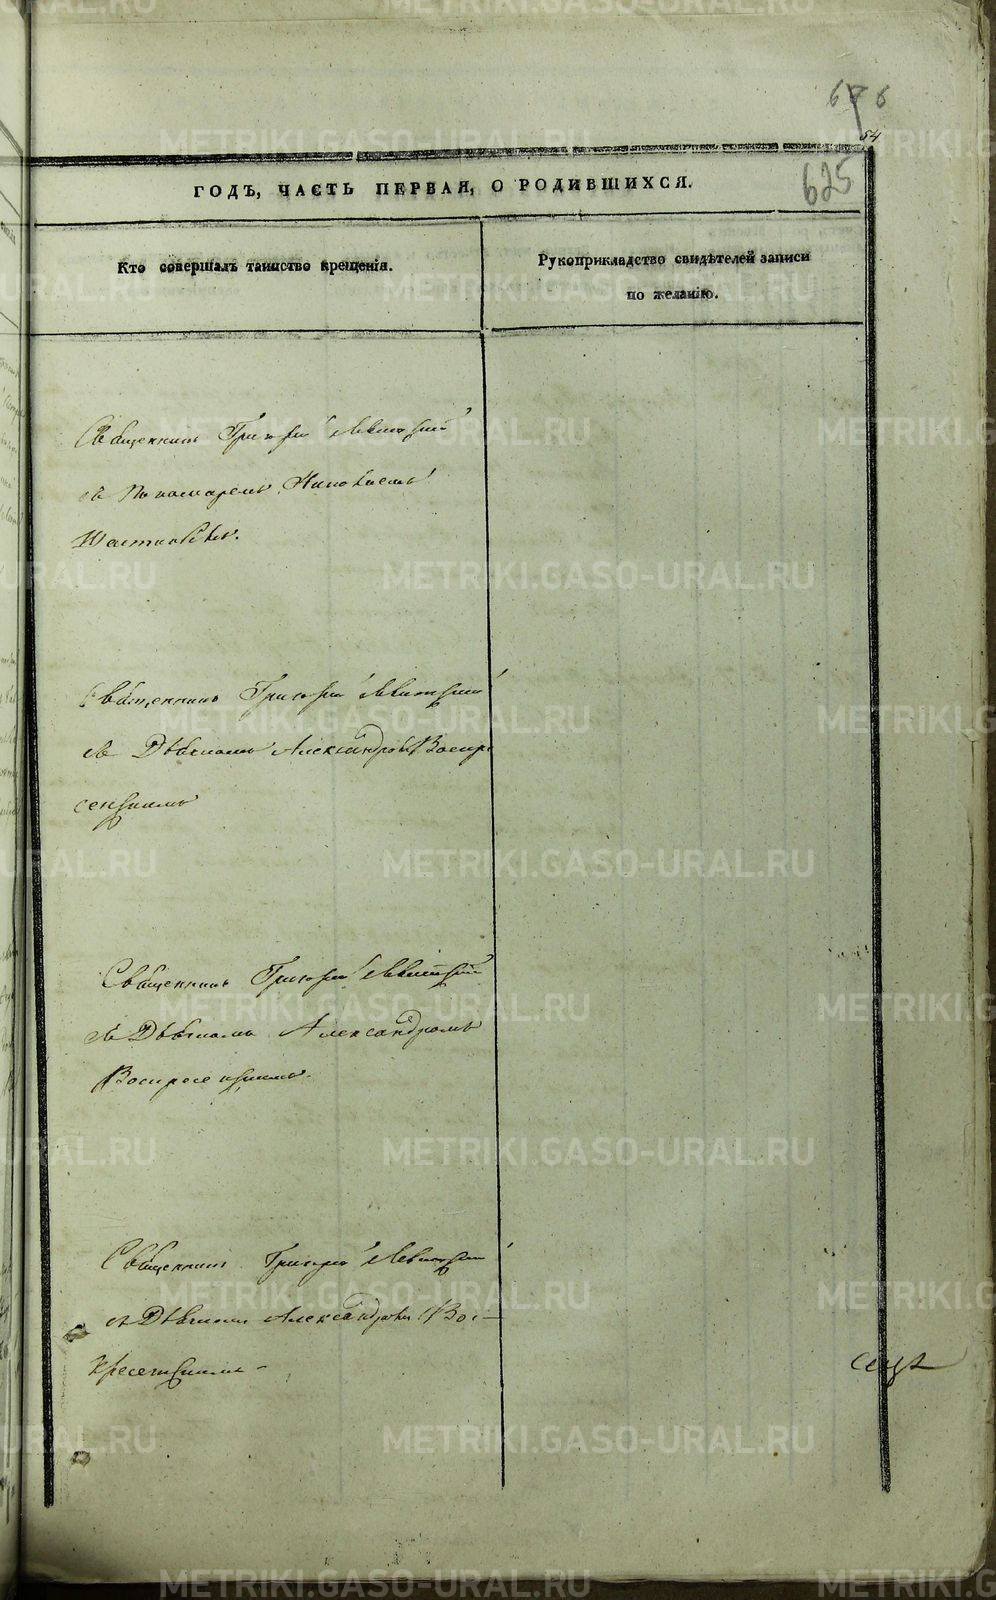 676
54
625
ГОДЪ, ЧАСТЬ ПЕРВАЯ, О РОДИВШИХСЯ.
Кто совершалъ таинство крещенія.
Рукоприкладство свидѣтелей записи
по желанію.
Священникъ Григорій Левитскій
съ Пономаремъ Николаемъ
Священникъ Григорій Левитскій
съ Дьячкомъ Александромъ Воскре
сенскимъ
Священникъ Григорій Левитскій
съ Дьячкомъ Александромъ
Воскресенскимъ.
Священникъ Григорій Левитскій
съ Дьячкомъ Александромъ Вос-
кресенскимъ
METRIKI.GASO-URAL.RU